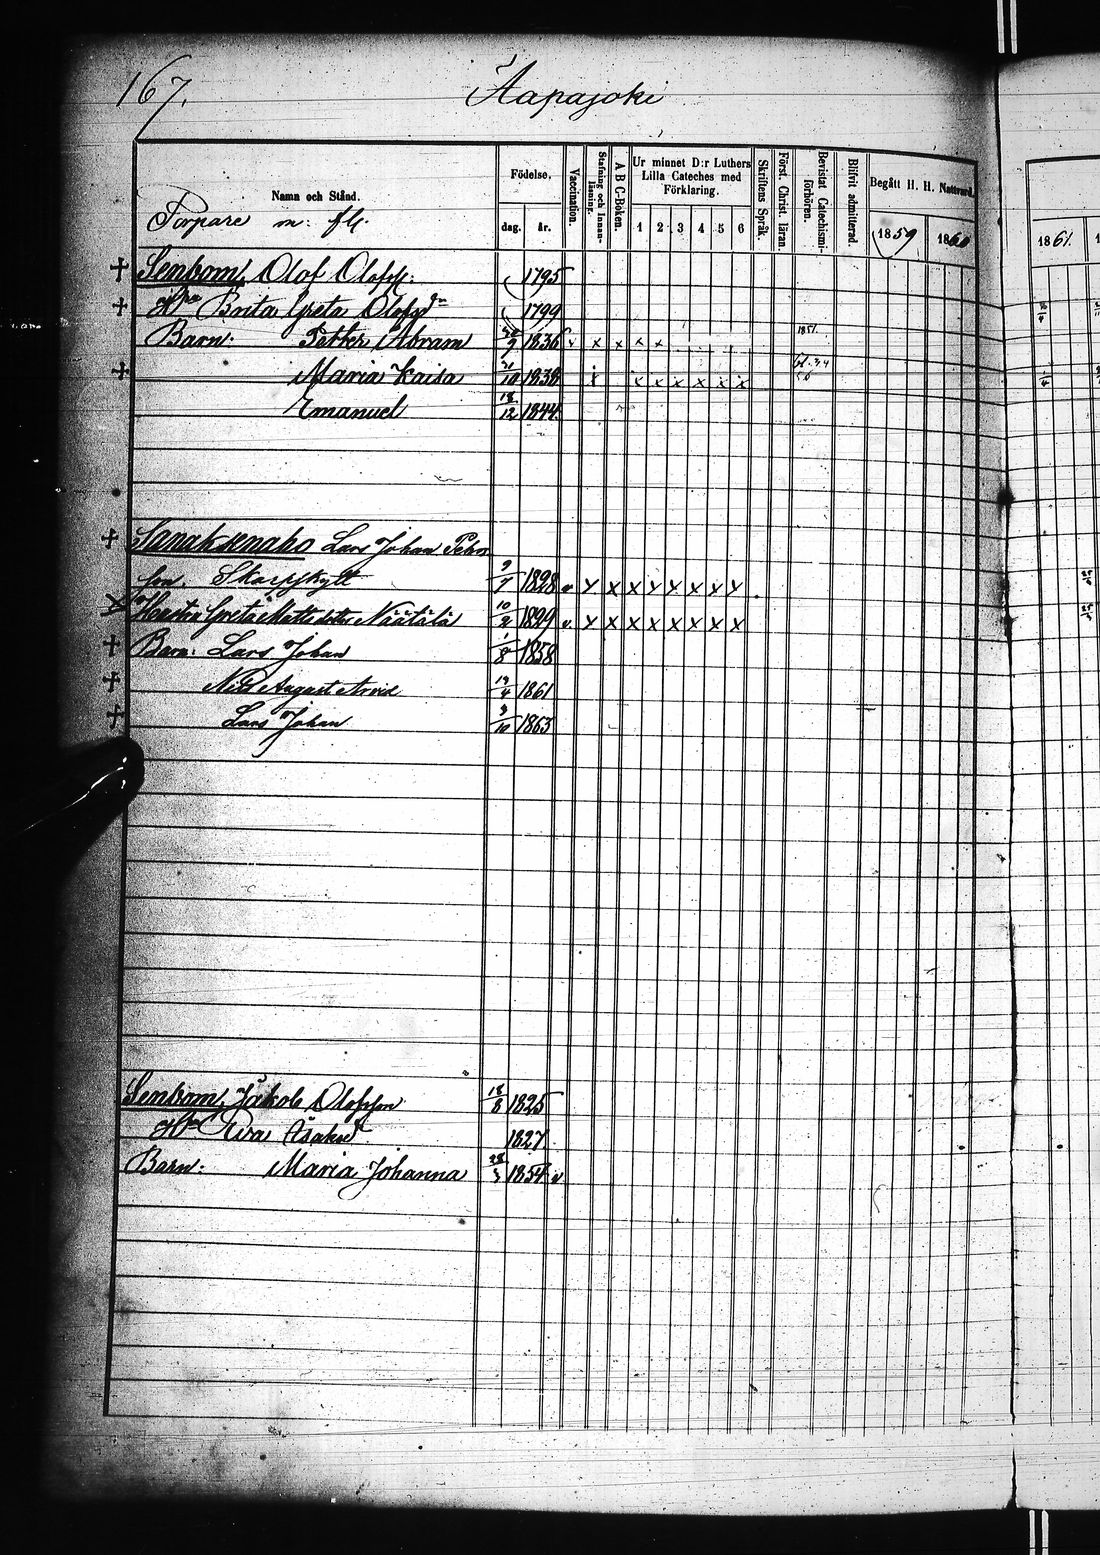 167.
Aapajoki
Namn och Stånd.
Födelse,
dag.
år.
Vaccination.
Stafning och Innan-läsning.
A B C-Boken.
Ur minnet D:r Luthers
Lilla Cateches med
Förklaring.
1 2 3 4 5 6
Skriftens Språk.
Först. Christ. läran.
Bevistat Catechismi-förhören.
Blifvit admitterad.
Begått H. H. Nattvard.
1859 1860
1861.
Torpare m: fl.
+ Olof Olofss. 1795
+ H:n Brita Greta Olofsd:r 1799
Barn: Petter Abram 1836 v x x x x x
+ Maria Kaisa 21/10 1838 x x x x x x x
Emanuel 18/12 1844
+ Lars Johan Petters
son. 9/7 1828 v x x x x x x x x
Hustru Greta Matts dotter Näätälä 10/2 1829 v x x x x x x x x
+ Barn: Lars Johan 1/8 1858
+ Nils August Arvid 14/4 1861
+ Lars Johan 3/10 1863
Jakob Olofsson 18/8 1825
H:n 1827
Barn: Maria Johanna 1854 v